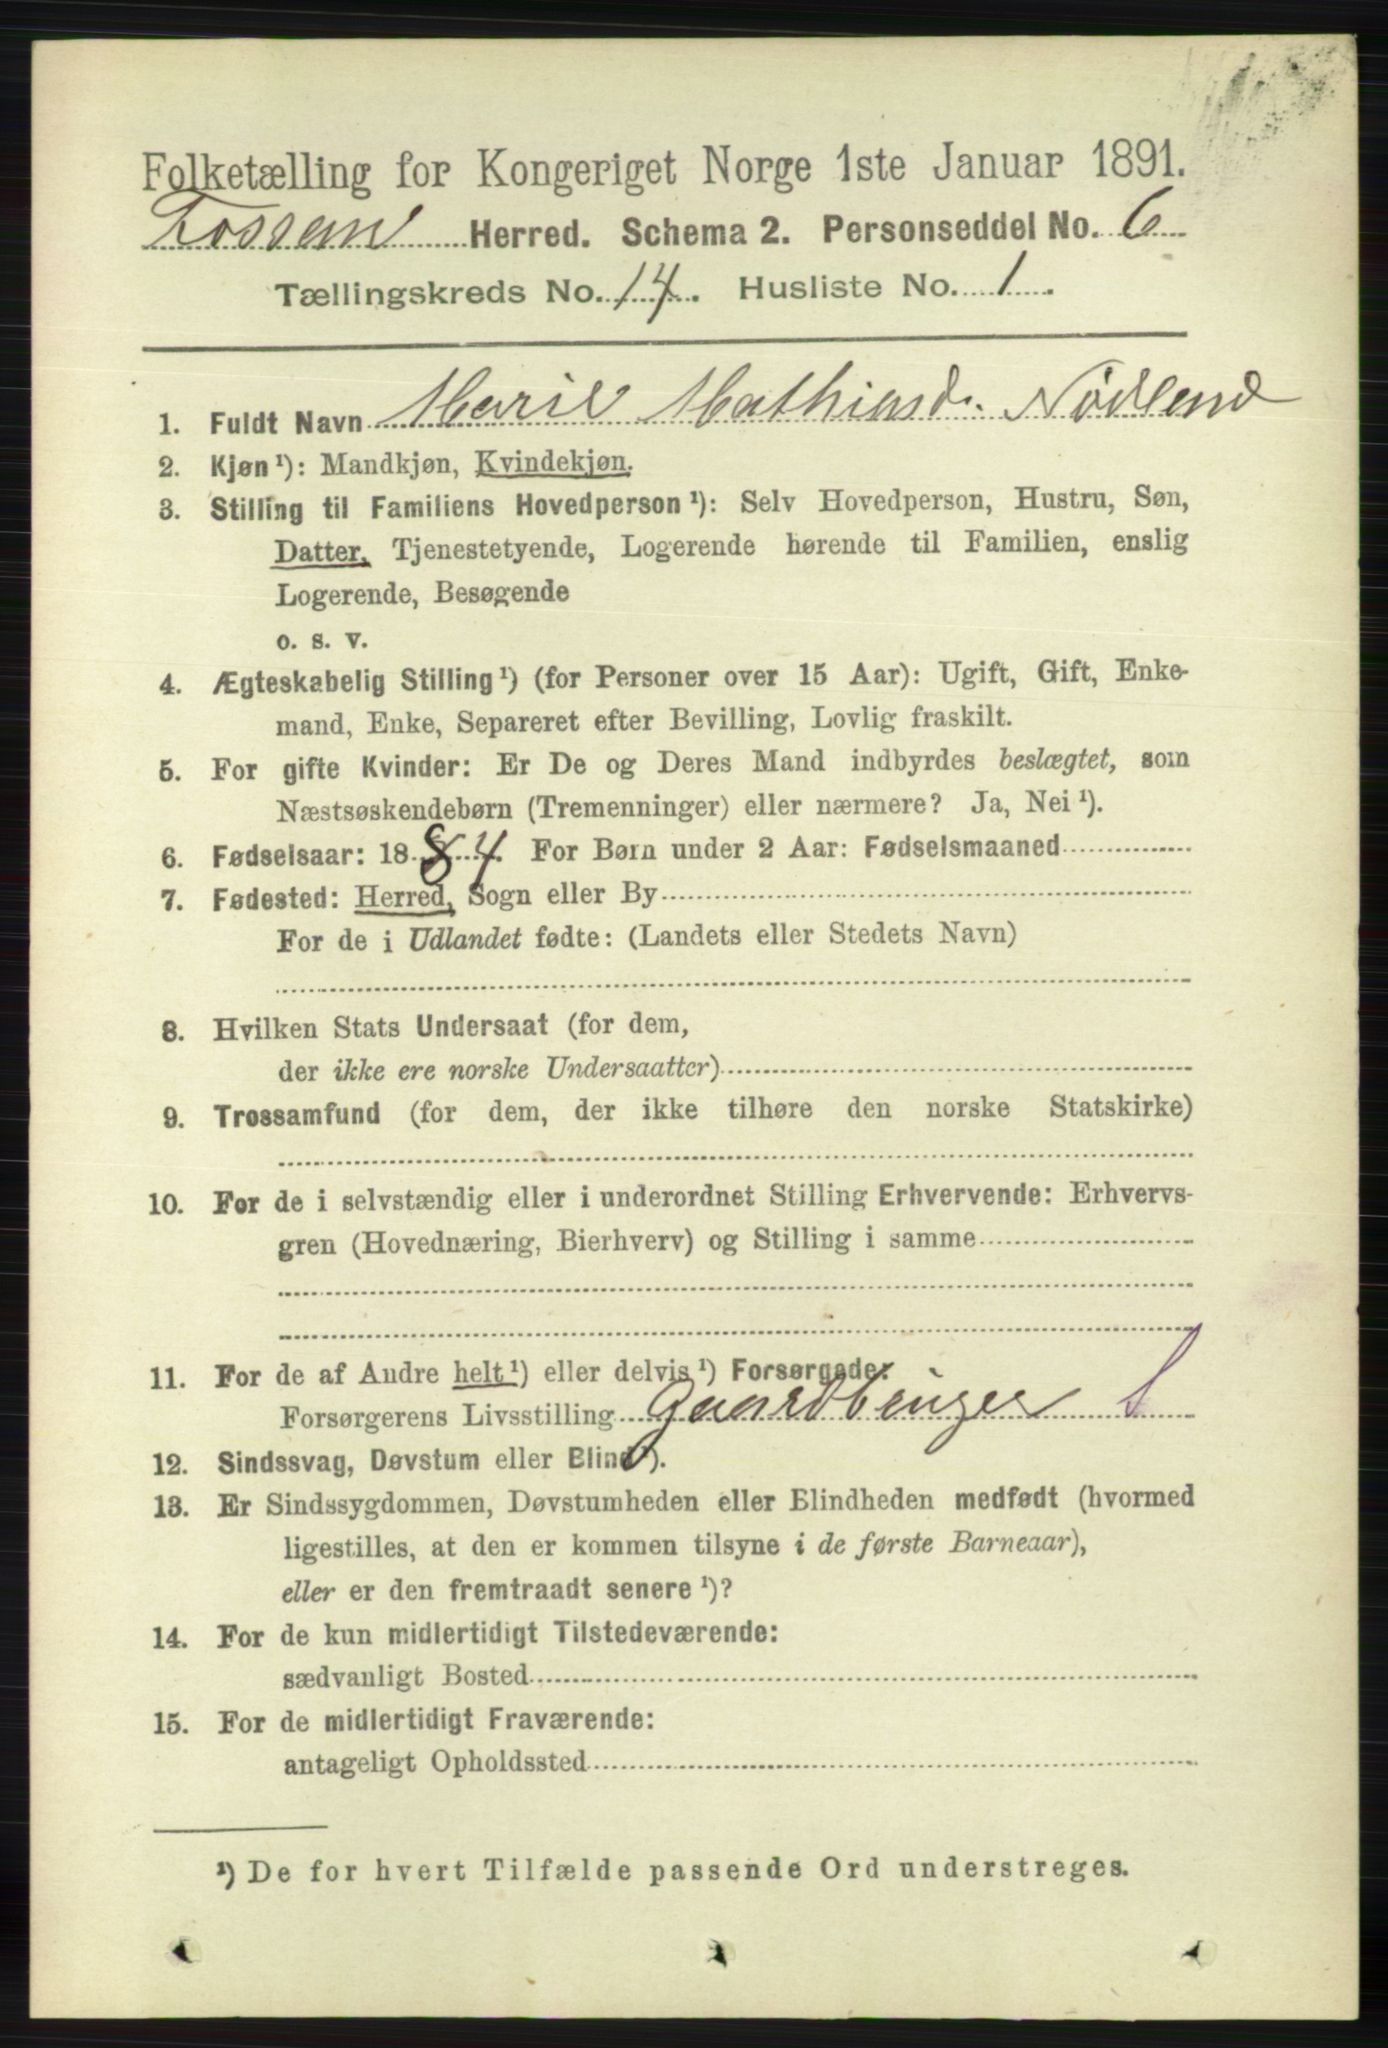 Folketælling for Kongeriget Norge 1ste Januar 1891.
Fossan Herred. Schema 2. Personseddel No. 6
Tællingskreds No. 14. Husliste No. 1.
1. Fuldt Navn Marie Mathiasd. Nødland
2. Kjøn ¹): Mandkjøn, Kvindekjøn.
3. Stilling til Familiens Hovedperson ¹): Selv Hovedperson, Hustru, Søn,
Datter, Tjenestetyende, Logerende hørende til Familien, enslig
Logerende, Besøgende
o. s. v.
4. Ægteskabelig Stilling ¹) (for Personer over 15 Aar): Ugift, Gift, Enke-
mand, Enke, Separeret efter Bevilling, Lovlig fraskilt.
5. For gifte Kvinder: Er De og Deres Mand indbyrdes beslægtet, som
Næstsøskendebørn (Tremenninger) eller nærmere? Ja, Nei ¹).
6. Fødselsaar: 1884. For Børn under 2 Aar: Fødselsmaaned
7. Fødested: Herred, Sogn eller By
For de i Udlandet fødte: (Landets eller Stedets Navn)
8. Hvilken Stats Undersaat (for dem,
der ikke ere norske Undersaatter)
9. Trossamfund (for dem, der ikke tilhøre den norske Statskirke)
10. For de i selvstændig eller i underordnet Stilling Erhvervende: Erhvervs-
gren (Hovednæring, Bierhverv) og Stilling i samme
11. For de af Andre helt ¹) eller delvis ¹) Forsørgede:
Forsørgerens Livsstilling Gaardbruger S
12. Sindssvag, Døvstum eller Blind ¹).
13. Er Sindssygdommen, Døvstumheden eller Blindheden medfødt (hvormed
ligestilles, at den er kommen tilsyne i de første Barneaar),
eller er den fremtraadt senere ¹)?
14. For de kun midlertidigt Tilstedeværende:
sædvanligt Bosted
15. For de midlertidigt Fraværende:
antageligt Opholdssted
¹) De for hvert Tilfælde passende Ord understreges.